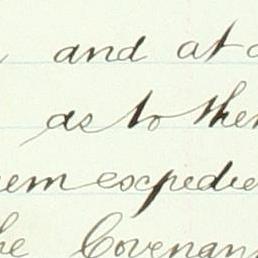 and at
as to the
em expedie
he Covenan